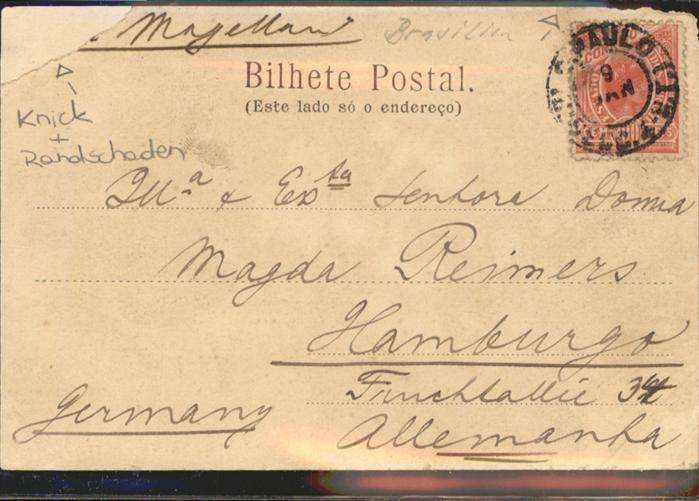 Magellan
Brasilien
Bilhete Postal.
(Este lado só o endereço)
Knick
+
Randschaden
S. PAULO
9
JAN
Illᵐᵃ & Exᵗᵃ Senhora Donna
Magda Reimers
Hamburgo
Fruchtallee 34
Germany
Allemanha